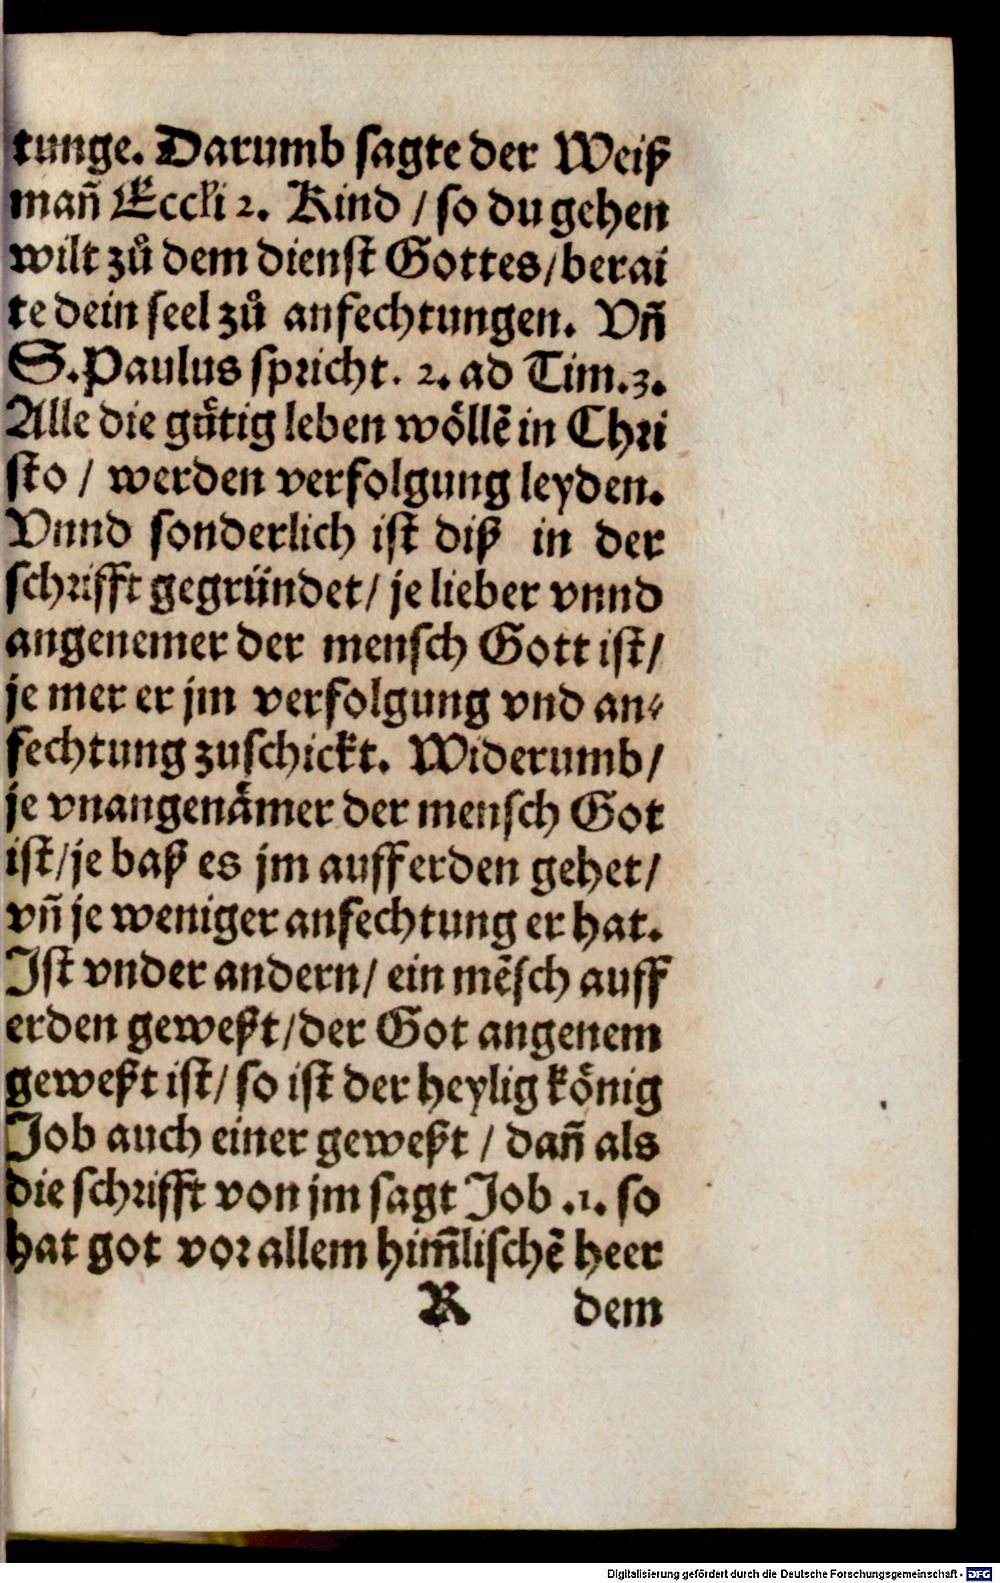 tunge. Darumb sagte der Weiß
mañ Eccli 2. Kind / so du gehen
wilt zů dem dienst Gottes/berai
te dein seel zů anfechtungen. Vñ
S.Paulus spricht. 2. ad Tim.3.
Alle die gůtig leben wöllē in Chri
sto / werden verfolgung leyden.
Vnnd sonderlich ist diß in der
schrifft gegründet/ je lieber vnnd
angenemer der mensch Gott ist/
je mer er jm verfolgung vnd an⸗
fechtung zuschickt. Widerumb/
je vnangenämer der mensch Got
ist/je baß es jm auff erden gehet/
vñ je weniger anfechtung er hat.
Ist vnder andern/ ein mēsch auff
erden geweßt/der Got angenem
geweßt ist/ so ist der heylig könig
Job auch einer geweßt / dañ als
die schrifft von jm sagt Job .1. so
hat got vor allem him̄lischē heer
R dem
Digitalisierung gefördert durch die Deutsche Forschungsgemeinschaft - DFG